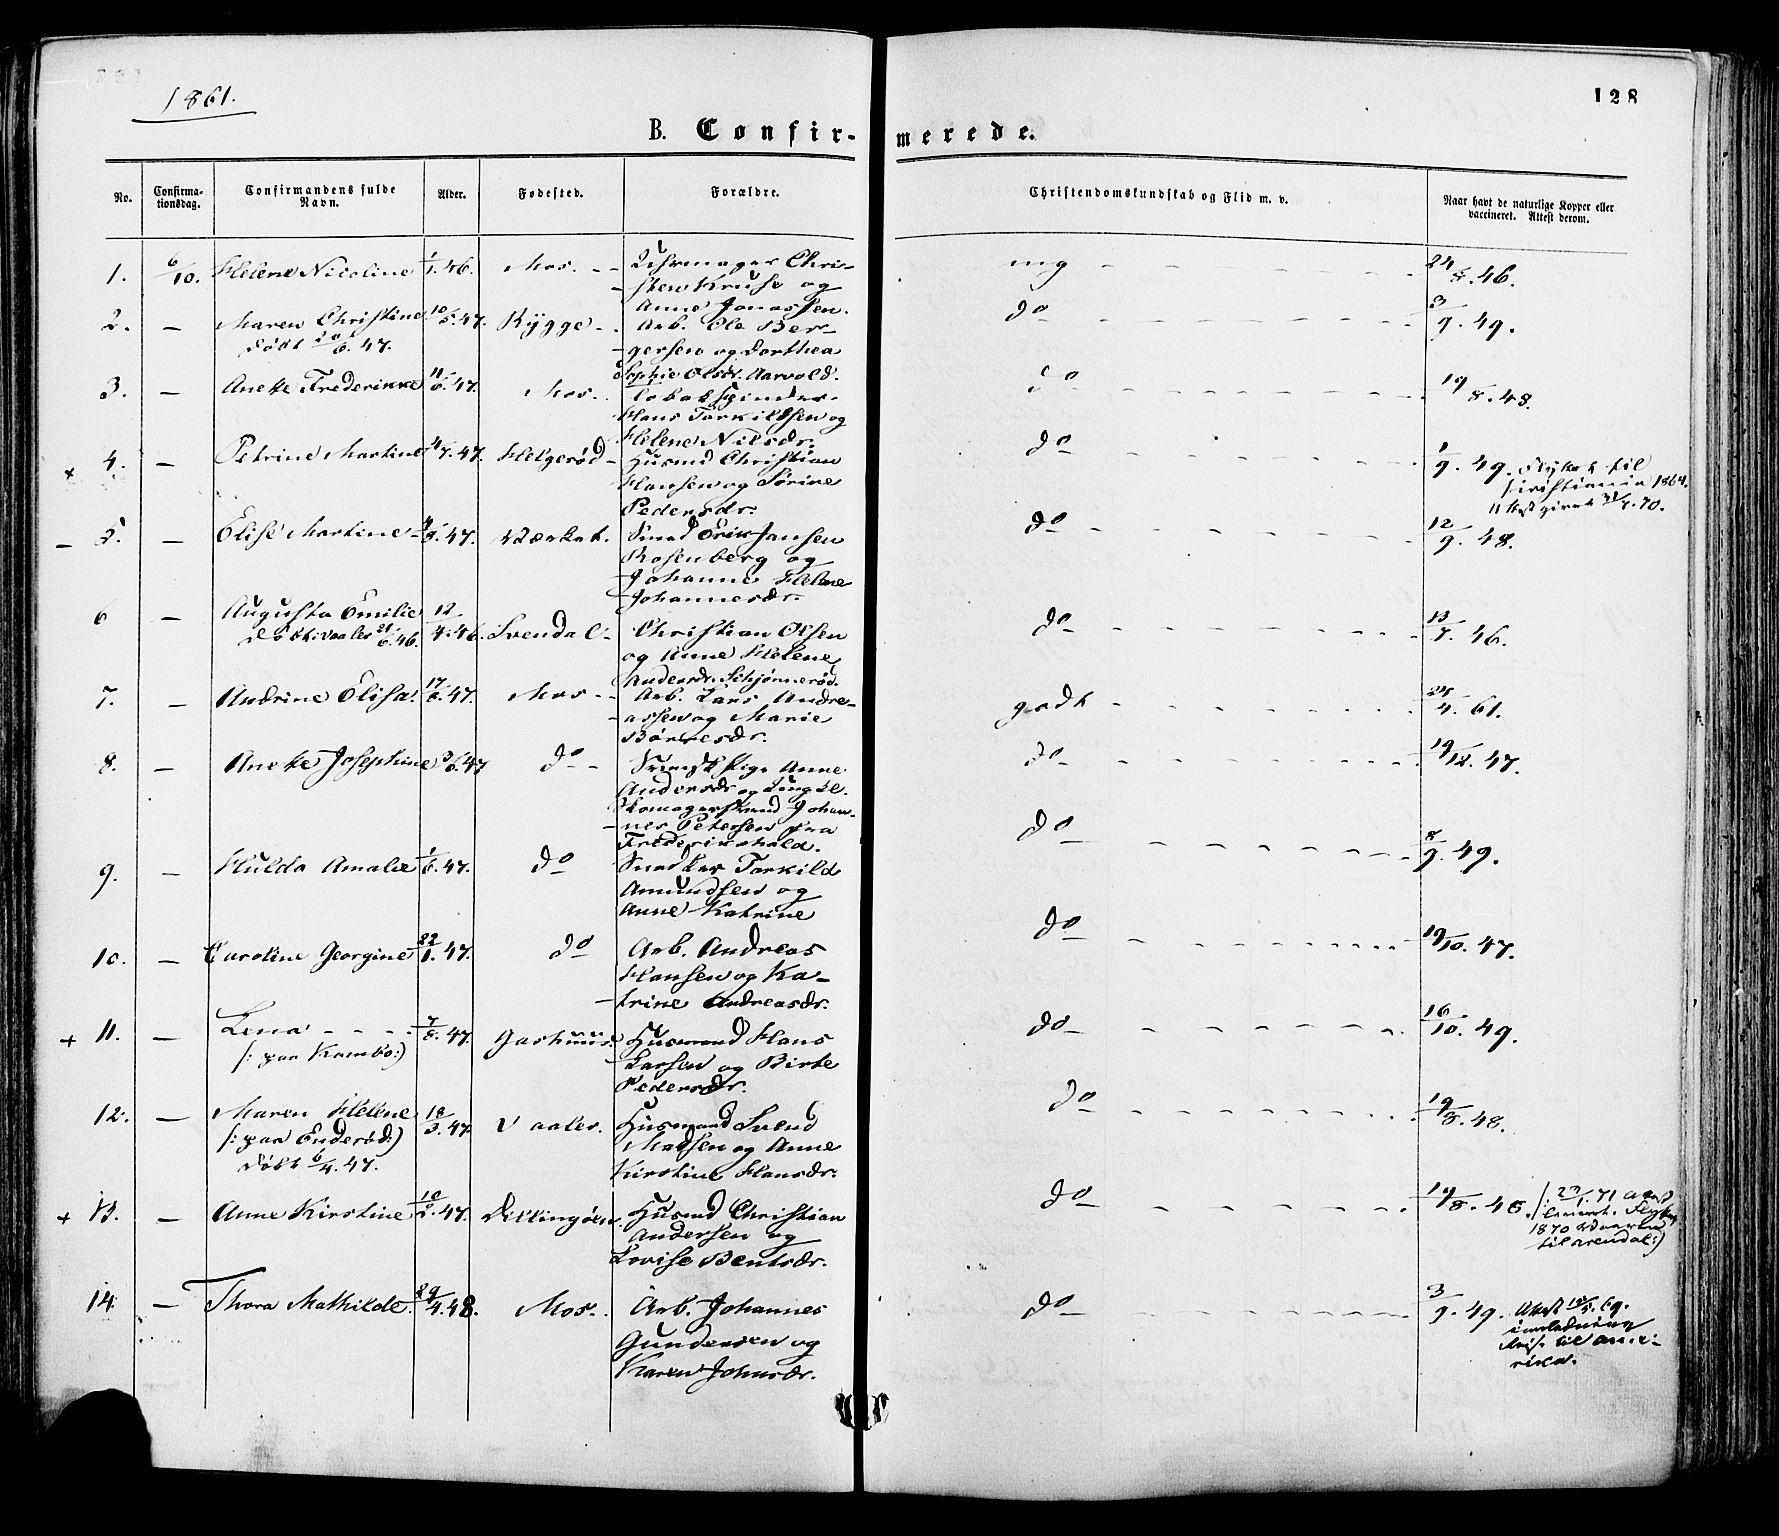 1861.
128
B. Confirmerede.
No.
Confirmationsdag.
Confirmandens fulde Navn.
Alder.
Fødested.
Forældre.
Christendomskundskab og Flid m. v.
Naar havt de naturlige Kopper eller vaccineret. Attest derom.
1. 6/10. Helene Nicoline 1/1.46. Mos. Uhrmager Chri-
sten Kruse og
Anne Jonassen.
mg 24/5.46.
2. — Maren Christine 10/5.47. Rygge Arb. Ole Ber-
døbt 20/6.47.
gersen og Dorthea
Sophie Olsdr. Aarvold.
do 3/9.49.
3. — Anette Frederikke 11/6.47. Mos.
Hans Torkildsen og
Helene Nilsdr.
do 19/8.48.
+ 4. — Petrine Martine 4/7.47. Helgerød Husmd Christian
Hansen og Sørine
Pedersdr.
do 1/9.49. Flyttet til
Christiania 1864.
Attest givet
- 5. — Elise Martine 47. Værket. Smed Erik Jansen
Rosenberg og
Johanne Helene
Johannesdr.
do 12/9.48.
6 — Augusta Emilie 12/4.46. Svendal
døbt i Vaaler 21/6.46.
Christian Olsen
og Anne Helene
Andersdr. Schjønnerød.
do 13/7.46.
7. — Andrine Elisa 17/6.47. Mos Arb. Lars Andre-
assen og Marie
Børresdr.
godt 24/4.61.
8. — Anette Josephine 3/6.47 do
Fruentstige Anne
Andersdr og Ungkl.
Skomagersvend Johan-
nes Petersen fra
Frederikshald.
do 19/12.47.
9. — Hulda Amalie 1/6.47. do Snedker Torkild
Amundsen og
Anne Katrine
do 8/9.49.
10. — Caroline Georgine 22/1.47. do Arb. Andreas
Hansen og Ka-
trine Andreasdr.
do 19/10.47.
+ 11. — Lena 7/8.47. Gashuus. Husmand Hans
(: paa Kambo:)
Larsen og Birte
Pedersdr.
do 16/10.49.
12. — Maren Helene 18/3.47. Vaaler. Husmand Svend
(: paa Enderød:)
døbt 6/4.47.
Madsen og Anne
Kirstine Hansdr.
do 19/8.48.
+ 13. — Anne Kirstine 10/2.47. Dillingøen. Husmd Christian
Andersen og
Lovise Bentsdr.
do 19/8.48. (: 27/1.71 attest
Flyttet
1870
til Arendal:)
14. — Thora Mathilde. 29/4.48. Mos. Arb. Johannes
Gundersen og
Karen Johnsdr.
do 3/9.49. Attest 10/5.69.
i anledning
Reise til Ame-
rika.